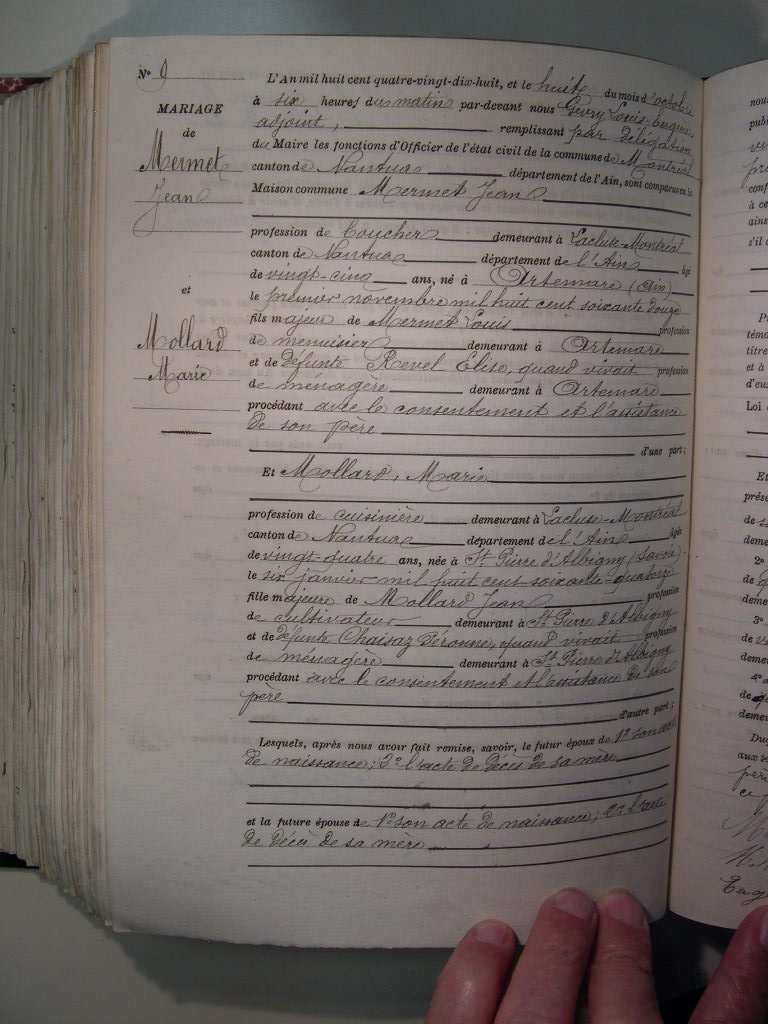 N° 9
MARIAGE
de
Mermet
Jean
et
Mollard
Marie
L'An mil huit cent quatre-vingt-dix-huit, et le huit du mois d'octobre
à six heures du matin par-devant nous Louis-Eugène
adjoint, remplissant par délégation
du Maire les fonctions d'Officier de l'état civil de la commune de Montréal
canton de Nantua département de l'Ain, sont comparus en la
Maison commune Mermet Jean
profession de Cocher demeurant à Lacluse-Montréal
canton de Nantua département de l'Ain âgé
de vingt-cinq ans, né à Artemare (Ain)
le premier novembre mil huit cent soixante douze
fils majeur de Mermet Louis profession
de menuisier demeurant à Artemare
et de défunte Revel Elise, quand vivait profession
de ménagère demeurant à Artemare
procédant avec le consentement et l'assistance
de son père
d'une part;
Et Mollard, Marie
profession de cuisinière demeurant à Lacluse-Montréal
canton de Nantua département de l'Ain âgée
de vingt-quatre ans, née à St Pierre d'Albigny (Savoie)
le six janvier mil huit cent soixante-quatorze
fille majeure de Mollard Jean profession
de cultivateur demeurant à St Pierre d'Albigny
et de défunte Péronne, quand vivait profession
de ménagère demeurant à St Pierre d'Albigny
procédant avec le consentement et l'assistance de son
père
d'autre part;
Lesquels, après nous avoir fait remise, savoir, le futur époux de 1° son acte
de naissance; 2° l'acte de décès de sa mère
et la future épouse de 1° son acte de naissance; 2° l'acte
de décès de sa mère